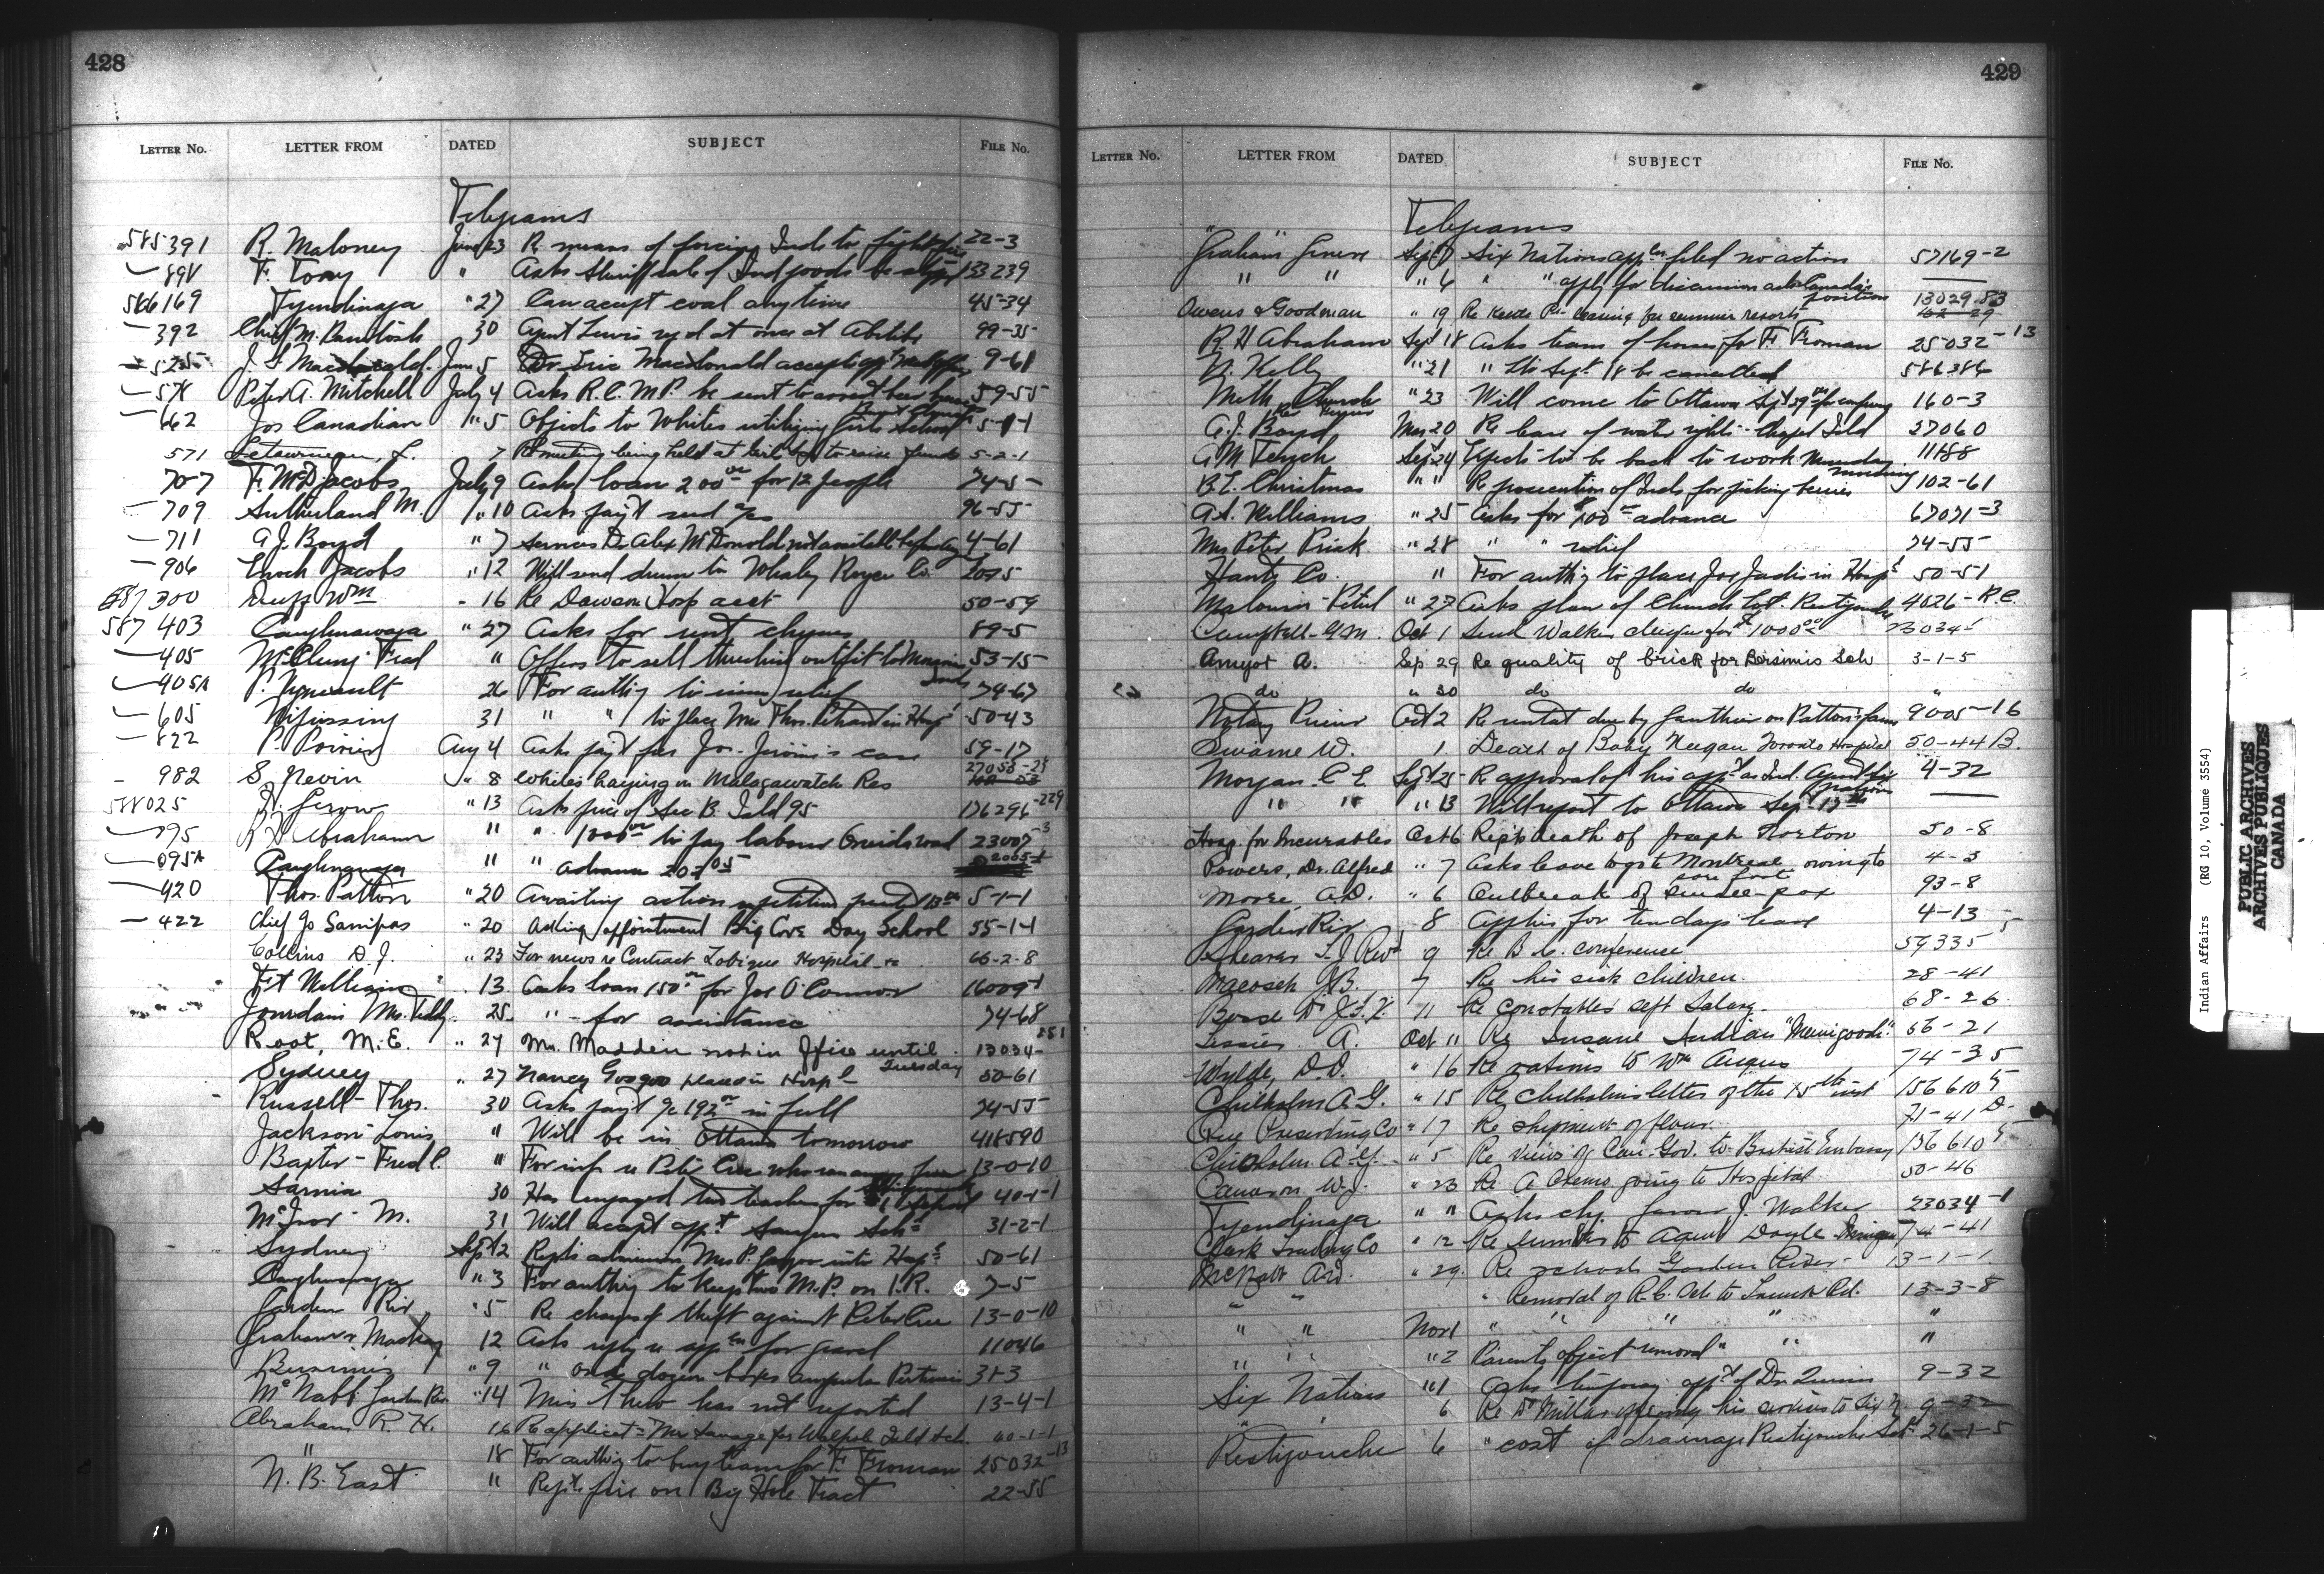 428
LETTER No. LETTER FROM DATED SUBJECT FILE No.
Telegrams
585391 R. Maloney June 23 Re means of forcing Inds to fight fire 22-3
898 F. Tony " Asks Sheriff sale of Ind goods be stopd 133239
586169 Tyendinaga " 27 Can accept coal anytime 45-34
392 Chief M. 30 Agent Lewis reqd at once at Abitibi 99-35
J. S. Macdonald June 5 Dr. Eric MacDonald accepts appt 9-61
578 Peter A. Mitchell July 4 Asks R.C.M.P. be sent to arrest beer 59-55
662 Jos Canadian " 5 Objects to Whites utilizing Girls School 5-1-1
571 Letourneau, L. 7 Re meeting being held at to raise funds 5-2-1
707 F. McD Jacobs July 9 Asks loan 200 00 for 12 people 74-5
709 Sutherland M. " 10 Asks payt secd a/cs 96-55
711 A J. Boyd " 7 services Dr Alex McDonald not available before Aug 4-61
906 Enoch Jacobs " 12 Will send drum to Whaley Royce Co.
587300 Duff Wm " 16 Re Dawson Hosp acct 50-59
587403 Caughnawaga " 27 Asks for rent cheques 89-5
405 McClung Fred " Offers to sell threshing outfit to Inds 53-15
405A P. 26 For authy to issue relief 74-67
605 Nipissing 31 " " to place Mrs Thos. in Hosp 50-43
822 P. Poirier Aug 4 Asks payt for Jos. Jerome's care 59-17
982 S. Nevin " 8 Whites haying on Malagawatch Res 27058-28
588025 J. Gerow " 13 Asks price of See B. Isld 95 176296-229
095 R H Abraham " " 1000 00 to pay labour Oneida road 23007-3
095A Caughnawaga " " advance 202 05
420 Thos. Patton " 20 Awaiting action petition 5-1-1
422 Chief Jo Sanipas " 20 Asking appointment Big Cove Day School 55-1-1
Collins D. J. " 23 For news re Contract Tobique Hospital 66-2-8
Ft William " 13 Asks loan 150 00 for Jos O'Connor 16009-1
Jourdain Mrs. Teddy 25 " - for assistance 74-68
Root, M. E. " 27 Mr. Madden not in office until Tuesday 13034-251
Sydney " 27 Nancy Googoo placed in Hospl 50-61
Russell - Thos. 30 Asks payt a/c 192 00 in full 74-55
Jackson - Louis " Will be in Ottawa tomorrow 418590
Baxter - Fred C. " For inf re Peter Cree who ran away from 13-0-10
Sarnia 30 Has engaged two teachers for 40-1-1
McIvor - M. 31 Will accept appt Saugeen Schl 31-2-1
Sydney Sept 2 Repts admission Mrs P. into Hospl 50-61
Caughnawaga " 3 For authy to keep two M.P. on I.R. 7-5
Garden Riv " 5 Re charge of theft against Peter Cree 13-0-10
Graham & Mackay 12 Asks reply re appcn for gravel 11046
Bersimis " 9 " one dozen boxes ampules 31-3
McNabb Garden Riv. " 14 Miss Thew has not reported 13-4-1
Abraham R. H. 16 Re applicatn Mr Savage for Walpole Isld Sch. 40-1-1
" 18 For authy to buy team for F. Froman 25032-13
N. B. East " Repts fire on Big Hole Tract 22-55
429
LETTER No. LETTER FROM DATED SUBJECT FILE No.
Telegrams
"Graham" Geneva Sept 7 Six Nations appcn filed no action 57169-2
" " " 6 " " apply for discussion asks Canada's position
Owens & Goodman " 19 Re leasing for summer resorts 13029-83
R H Abraham Sept 18 Asks team of horses for F. Froman 25032-13
N. Kelly " 21 " Sept 18 be cancelled 586386
Meth Church " 23 Will come to Ottawa Sept 29 for conference 160-3
A. J. Boyd 20 Re lease of water rights - Chapel Isld 27060
G M Tench Sept 24 Expects to be back to work Monday morning 11188
B. L. Christmas " " Re prosecution of Inds for picking berries 102-61
A. S. Williams " 25 Asks for $100 00 advance 67071-3
Mrs Peter Paul " 28 " " relief 74-55
Hants Co. " For authy to place Joe Jadis in Hospl 50-51
Malouin - Pitul " 27 Asks plan of Church Lot. Restigouche 4026-R.C.
Campbell - G. M. Oct 1 Send Walker cheque for $1000 00
Amyot A. Sep. 29 Re quality of brick for Bersimis Sch 3-1-5
do " 30 do do "
Notary Oct 2 Re rental due by Gauthier on Patton's farm 9005-16
Swaine W. 1 Death of Baby Keegan Toronto Hospital 50-44 B.
Morgan C E Sept 25 Re approval of his appt as Ind. Agent Six Nations 4-32
" " " 13 Will report to Ottawa Sept 17th
Hosp. for Incurables Oct 6 Repts death of Joseph Norton 50-8
Powers, Dr. Alfred " 7 Asks leave to go to Montreal owing to sore foot 4-3
Moore, A.D. " 6 Outbreak of small-pox 93-8
Garden Riv 8 Applies for ten days leave 4-13
Shearer T. J Revd 9 Re B.C. conference 59335-5
J B. 7 Re his sick children. 28-41
11 Re Constables Sept Salary 68-26
Tessier A. Oct 11 Re Insane Indian 56-21
Wylde, D.D. " 16 Re rations to Wm Angus 74-35
Chisholm A. G. " 15 Re Chisholm's letter of the 15th inst 156610-5
Preserving Co " 17 Re shipment of flour. 71-41 D.
Chisholm A. G. " 5 Re views of Can. Gov. to British Embassy 156610-5
Cameron W. J. " 23 Re A going to Hospital 50-46
Tyendinaga " " Asks chq. favour J. Walker 23034-1
Clark Trading Co " 12 Re lumber to Agent Doyle 74-41
McNabb A.D. " 29 Re schools Garden River - 13-1-1
" " " Removal of R.C. Sch to Town Pd. 13-3-8
" " Nov 1 " " " " "
" " " 2 Parents object removal " " "
Six Nations " 1 Asks temporary appt of Dr. Quinn 9-32
" " 6 Re Dr Miller offering his services to Six N. 9-32
Restigouche 6 " cost of drainage Restigouche Schl 26-1-5
Indian Affairs (RG 10, Volume 3554)
PUBLIC ARCHIVES
ARCHIVES PUBLIQUES
CANADA